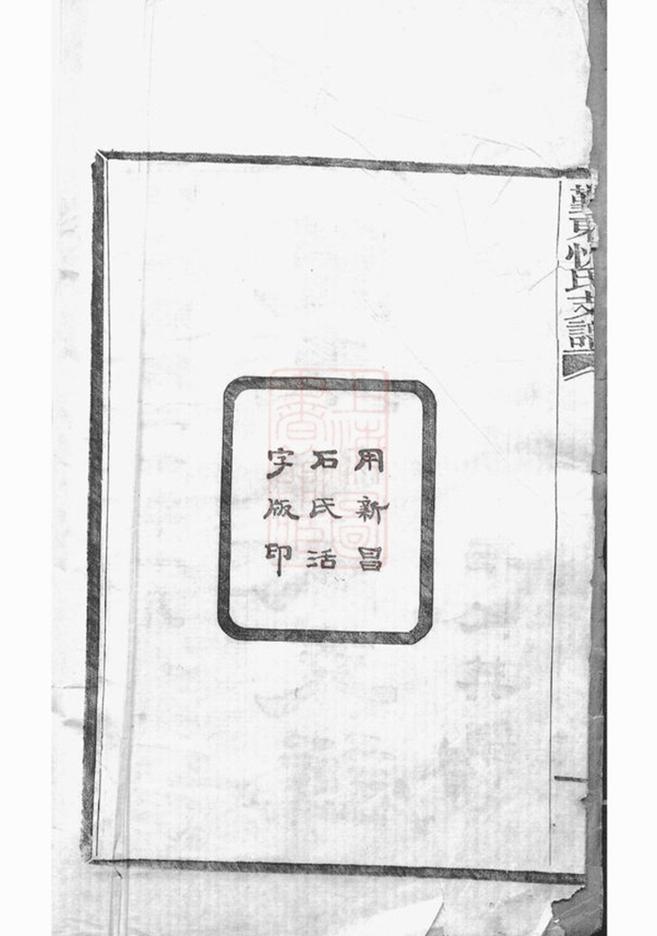 鄞東忻氏支譜
用新昌
石氏活
字版印